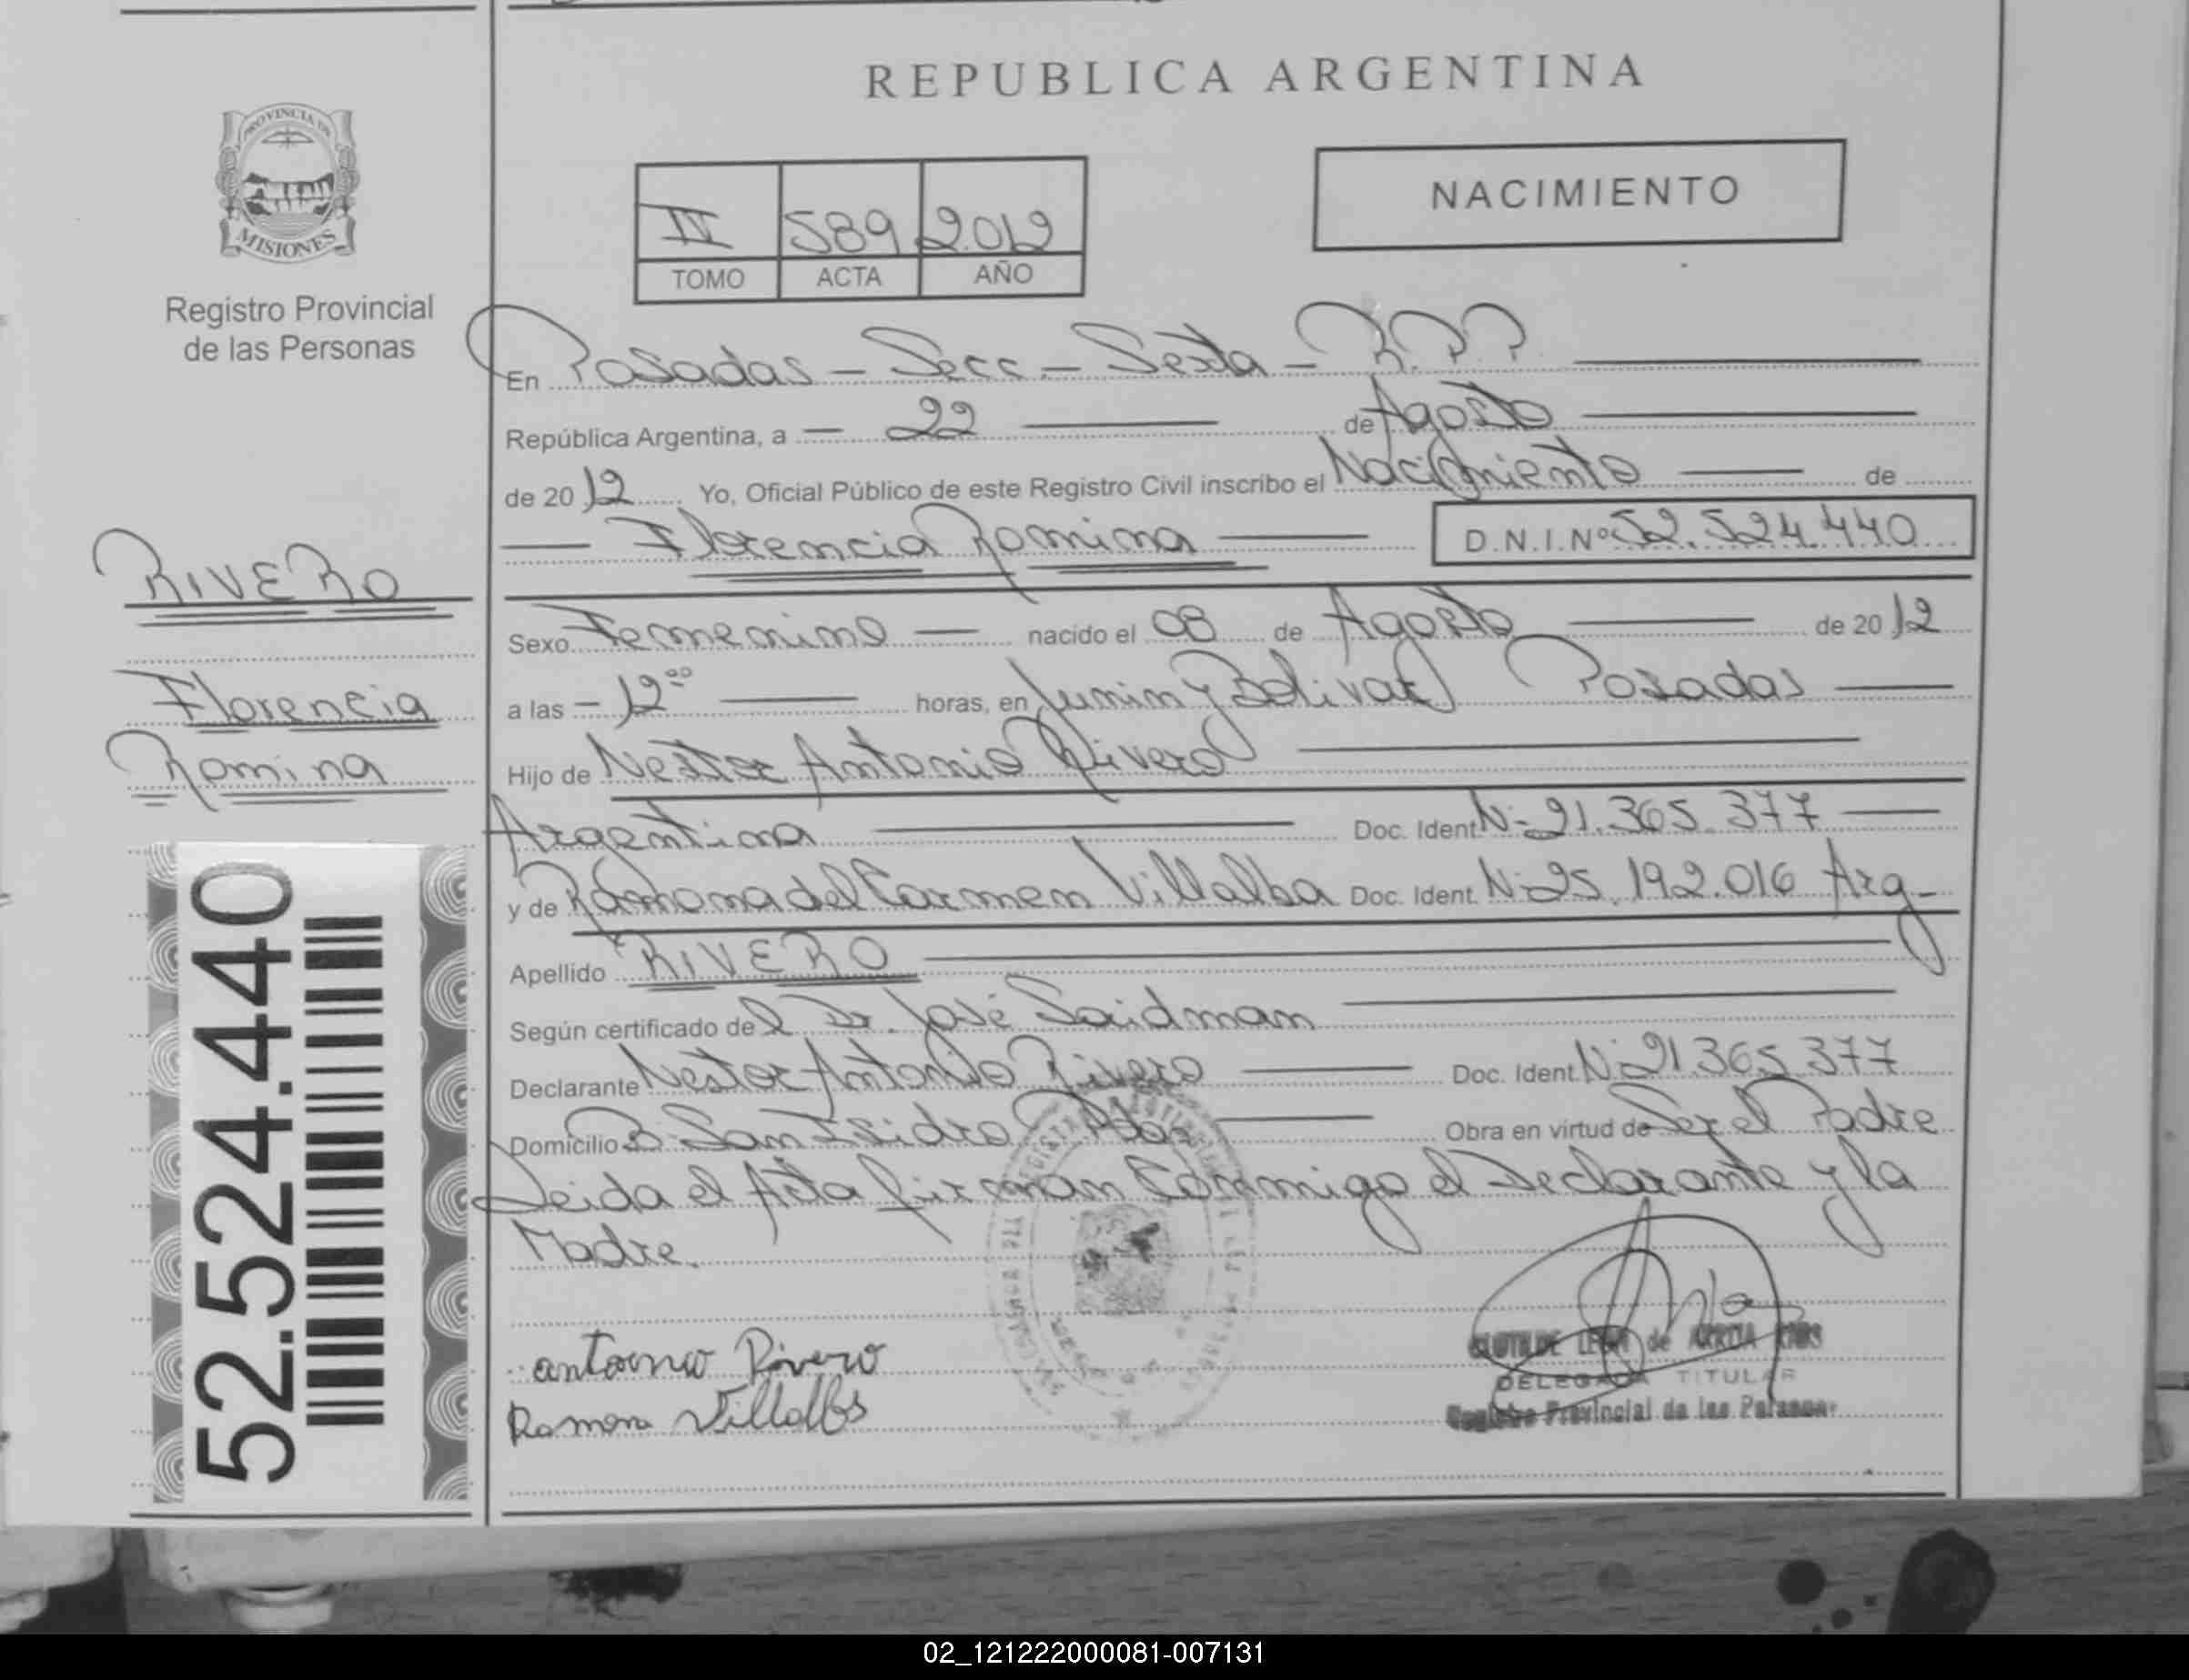 REPUBLICA ARGENTINA
PROVINCIA DE
MISIONES
Registro Provincial
de las Personas
NACIMIENTO
IV 589 2.012
TOMO ACTA AÑO
En Posadas - Secc - Sexta - R.P.P.
República Argentina, a - 22 de Agosto
de 2012 Yo, Oficial Público de este Registro Civil inscribo el Nacimiento de
Florencia Romina D.N.I. Nº 52.524.440
RIVERO
Florencia
Romina
Sexo Femenino - nacido el 08 de Agosto de 2012
a las - 12⁰⁰ horas, en Junin y Bolivar Posadas
Hijo de Nestor Antonio Rivero
Argentina Doc. Ident. Nº 21.365.377
y de Ramona del Carmen Villalba Doc. Ident. Nº 25.192.016 Arg-
Apellido RIVERO
Según certificado del Dr. José Saidman
Declarante Nestor Antonio Rivero Doc. Ident. Nº 21.365.377
Domicilio Bº San Isidro Pdas Obra en virtud de Ser el Padre
Leida el Acta firman Conmigo el Declarante y la
Madre.
antonio Rivero
Ramona Villalba
CLOTILDE de
DELEGADA TITULAR
Registro Provincial de las Personas
52.524.440
02_121222000081-007131